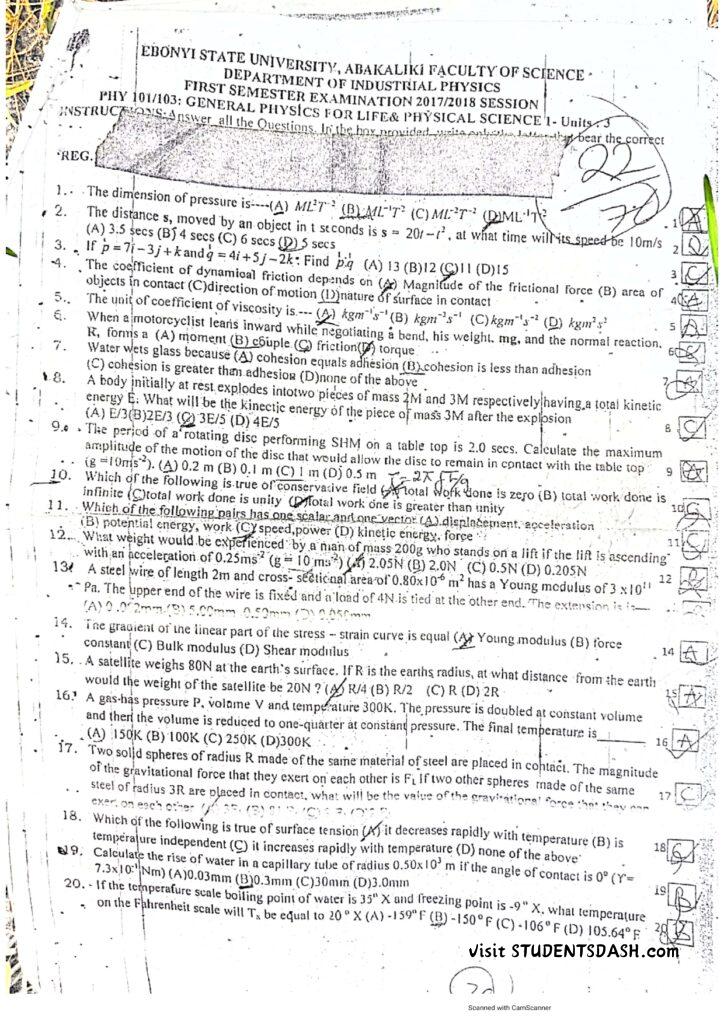 EBONYI STATE UNIVERSITY, ABAKALIKI FACULTY OF SCIENCE
DEPARTMENT OF INDUSTRIAL PHYSICS
FIRST SEMESTER EXAMINATION 2017/2018 SESSION
PHY 101/103: GENERAL PHYSICS FOR LIFE & PHYSICAL SCIENCE 1- Units : 3
INSTRUCTIONS: Answer all the Questions. In the box provided, write only the letter that bear the correct
REG.
22/70
1. The dimension of pressure is----(A) ML²T⁻² (B) ML⁻¹T² (C) ML⁻²T⁻² (D) ML⁻¹T⁻²
2. The distance s, moved by an object in t seconds is s = 20t – t², at what time will its speed be 10m/s
(A) 3.5 secs (B) 4 secs (C) 6 secs (D) 5 secs
3. If p = 7i – 3j + k and q = 4i + 5j – 2k: Find p.q (A) 13 (B)12 (C)11 (D)15
4. The coefficient of dynamical friction depends on (A) Magnitude of the frictional force (B) area of
objects in contact (C)direction of motion (D)nature of surface in contact
5. The unit of coefficient of viscosity is.--- (A) kgm⁻¹s⁻¹ (B) kgm⁻²s⁻¹ (C) kgm⁻¹s⁻² (D) kgm²s²
6. When a motorcyclist leans inward while negotiating a bend, his weight, mg, and the normal reaction,
R, forms a (A) moment (B) couple (C) friction(D) torque
7. Water wets glass because (A) cohesion equals adhesion (B) cohesion is less than adhesion
(C) cohesion is greater than adhesion (D)none of the above
8. A body initially at rest explodes intotwo pieces of mass 2M and 3M respectively having a total kinetic
energy E. What will be the kinectic energy of the piece of mass 3M after the explosion
(A) E/3(B)2E/3 (C) 3E/5 (D) 4E/5
9. The period of a rotating disc performing SHM on a table top is 2.0 secs. Calculate the maximum
amplitude of the motion of the disc that would allow the disc to remain in contact with the table top
(g =10ms⁻²). (A) 0.2 m (B) 0.1 m (C) 1 m (D) 0.5 m
10. Which of the following is true of conservative field (A) total work done is zero (B) total work done is
infinite (C)total work done is unity (D)Total work one is greater than unity
11. Which of the following pairs has one scalar and one vector (A) displacement, acceleration
(B) potential energy, work (C) speed,power (D) kinetic energy, force
12. What weight would be experienced by a man of mass 200g who stands on a lift if the lift is ascending
with an acceleration of 0.25ms⁻² (g = 10 ms⁻²) (A) 2.05N (B) 2.0N (C) 0.5N (D) 0.205N
13. A steel wire of length 2m and cross- sectional area of 0.80x10⁻⁶ m² has a Young modulus of 3 x10¹¹
Pa. The upper end of the wire is fixed and a load of 4N is tied at the other end. The extension is
14. The gradient of the linear part of the stress – strain curve is equal (A) Young modulus (B) force
constant (C) Bulk modulus (D) Shear modulus
15. A satellite weighs 80N at the earth's surface. If R is the earths radius, at what distance from the earth
would the weight of the satellite be 20N ? (A) R/4 (B) R/2 (C) R (D) 2R
16. A gas has pressure P, volume V and temperature 300K. The pressure is doubled at constant volume
and then the volume is reduced to one-quarter at constant pressure. The final temperature is______
(A) 150K (B) 100K (C) 250K (D)300K
17. Two solid spheres of radius R made of the same material of steel are placed in contact. The magnitude
of the gravitational force that they exert on each other is F. If two other spheres made of the same
steel of radius 3R are placed in contact, what will be the value of the gravitational force that they can
exert on each other
18. Which of the following is true of surface tension (A) it decreases rapidly with temperature (B) is
temperature independent (C) it increases rapidly with temperature (D) none of the above
19. Calculate the rise of water in a capillary tube of radius 0.50x10³ m if the angle of contact is 0° (Y=
Nm) (A)0.03mm (B)0.3mm (C)30mm (D)3.0mm
20. - If the temperature scale boiling point of water is 35° X and freezing point is -9° X, what temperature
on the Fahrenheit scale will Tₓ be equal to 20 ° X (A) -159° F (B) -150° F (C) -106° F (D) 105.64° F
visit STUDENTSDASH.com
Scanned with CamScanner